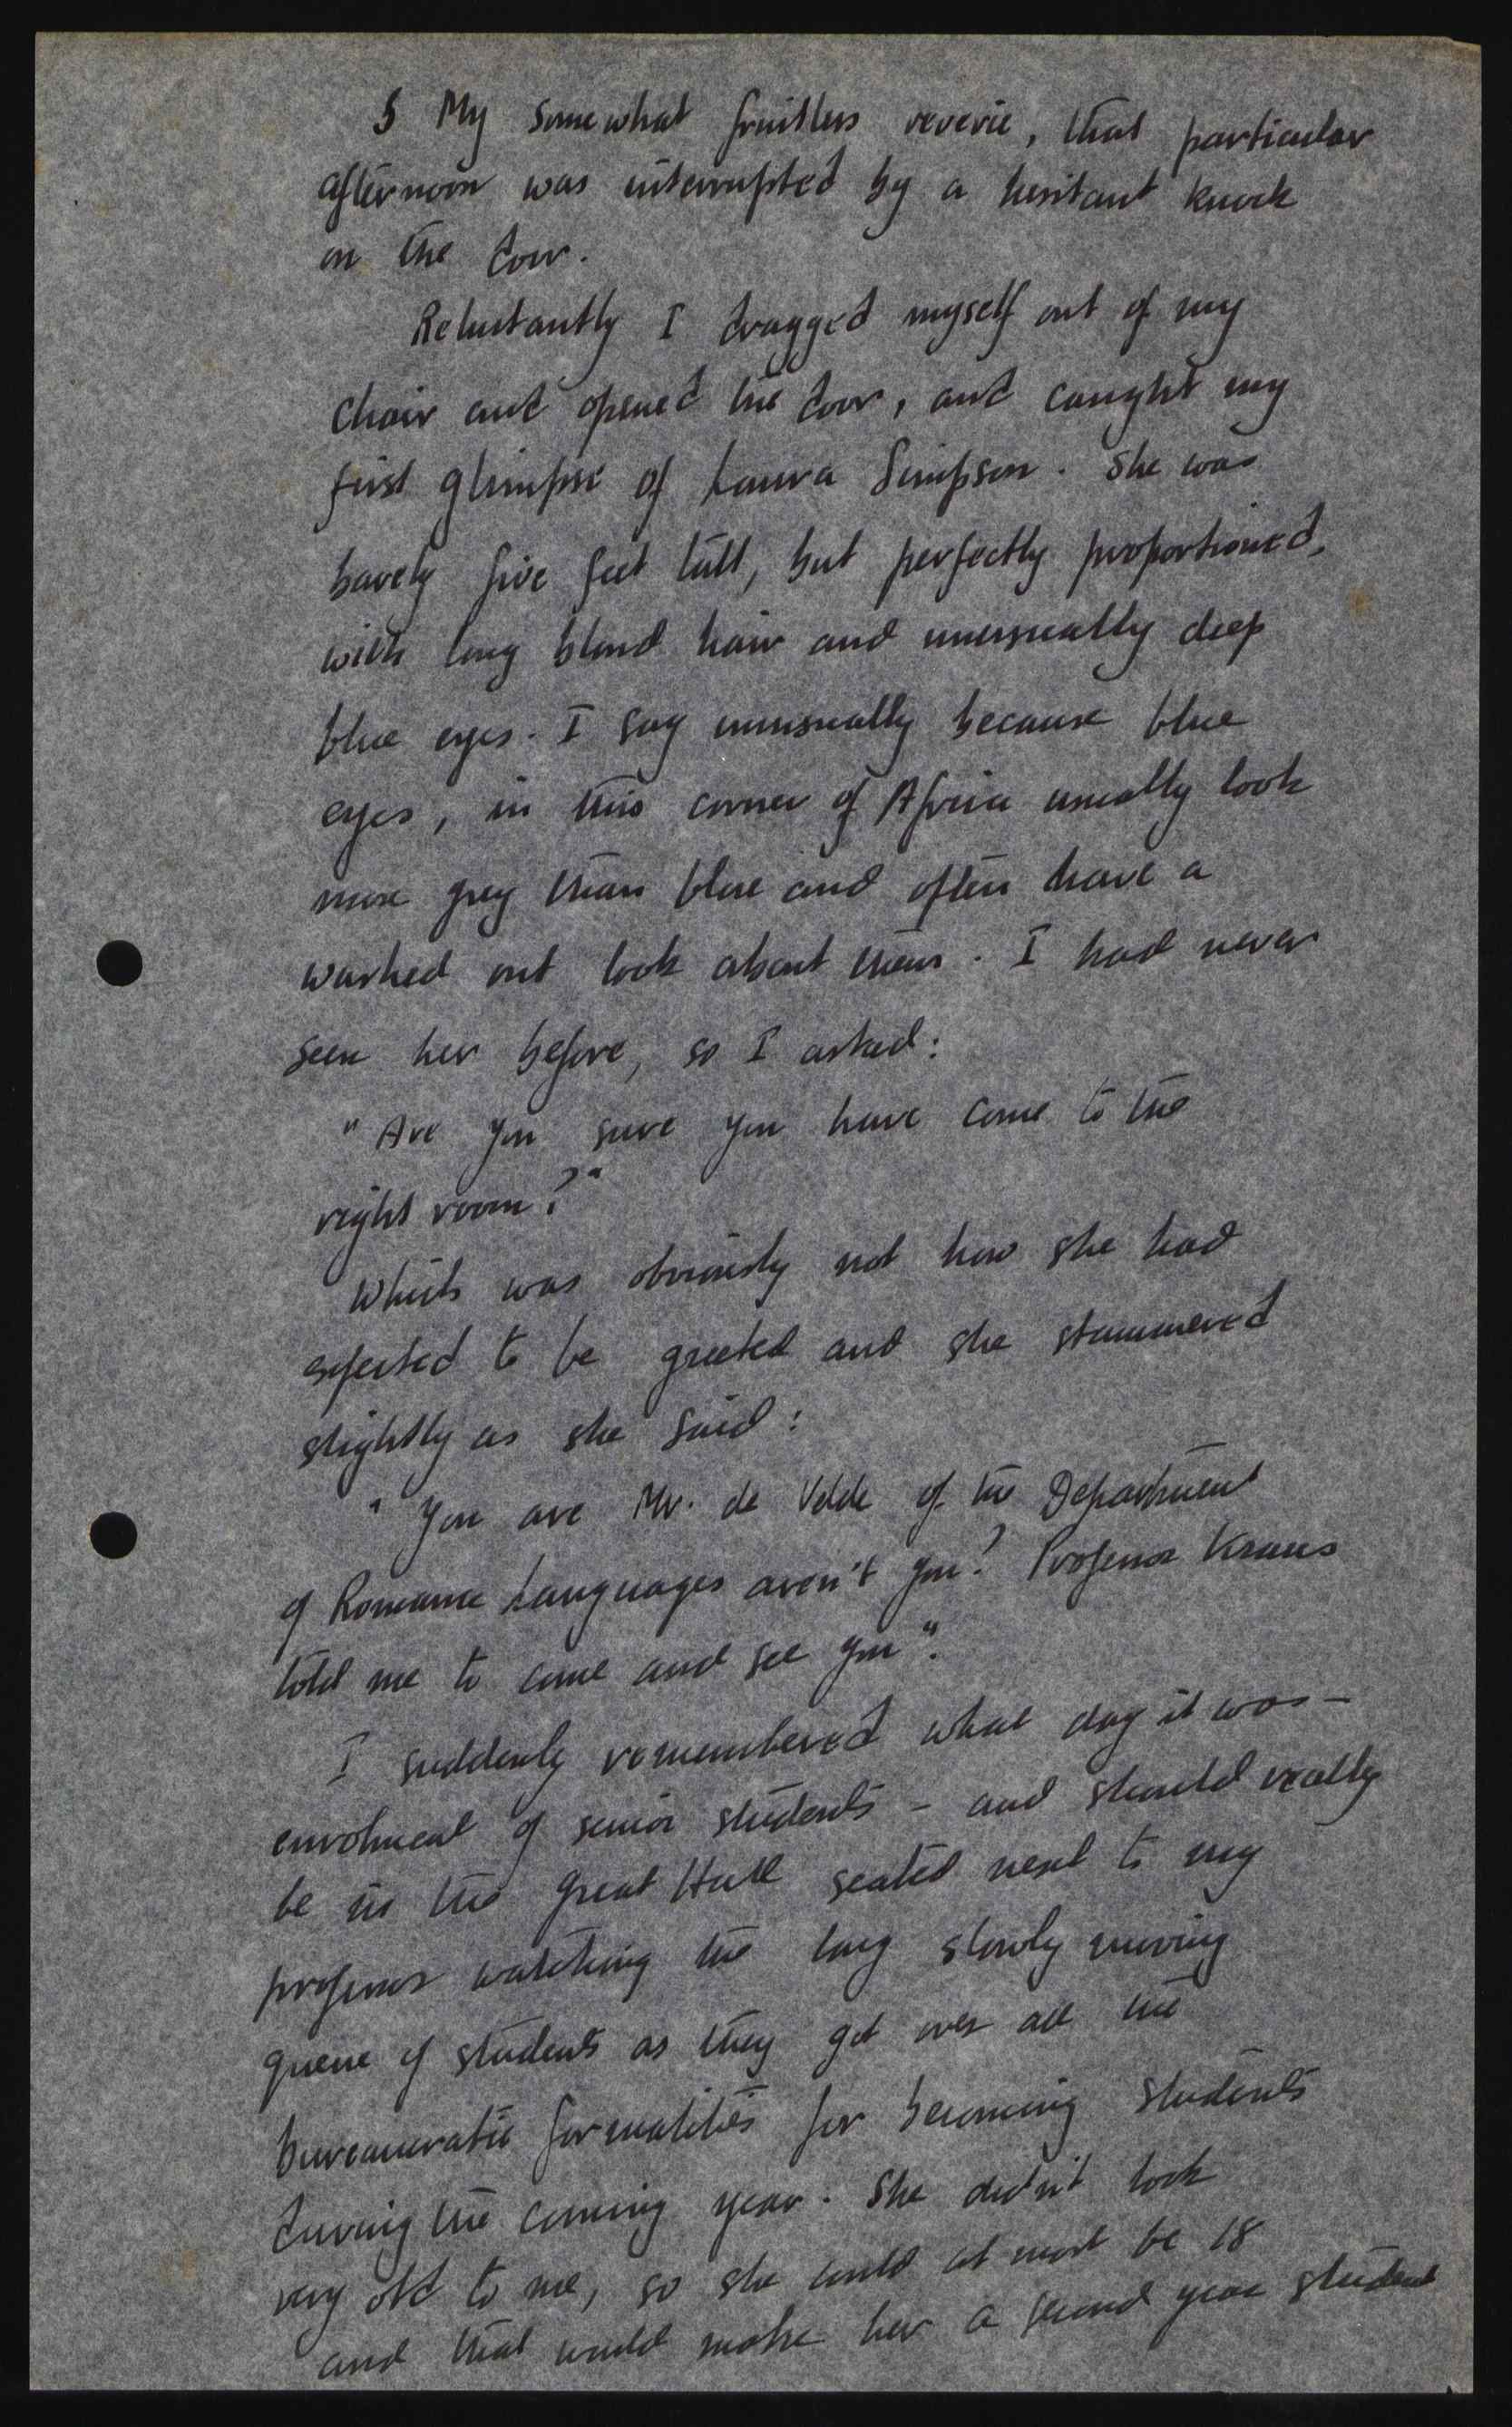 § My somewhat fruitless reverie, that particular
afternoon was interrupted by a hesitant knock
on the door.
Reluctantly I dragged myself out of my
chair and opened the door, and caught my
first glimpse of Laura Simpson. She was
barely five feet tall, but perfectly proportioned,
with long blond hair and unusually deep
blue eyes. I say unusually because blue
eyes, in this corner of Africa usually look
more grey than blue and often have a
washed out look about them. I had never
seen her before, so I asked:
"Are you sure you have come to the
right room?"
Which was obviously not how she had
expected to be greeted and she stammered
slightly as she said:
"You are Mr. de Velde of the Department
of Romance Languages aren't you? Professor Kraus
told me to come and see you".
I suddenly remembered what day it was –
enrolment of senior students – and should really
be in the Great Hall seated next to my
professor watching the long slowly moving
queue of students as they got over all the
bureaucratic formalities for becoming students
during the coming year. She didn't look
very old to me, so she could at most be 18
and that would make her a second year student